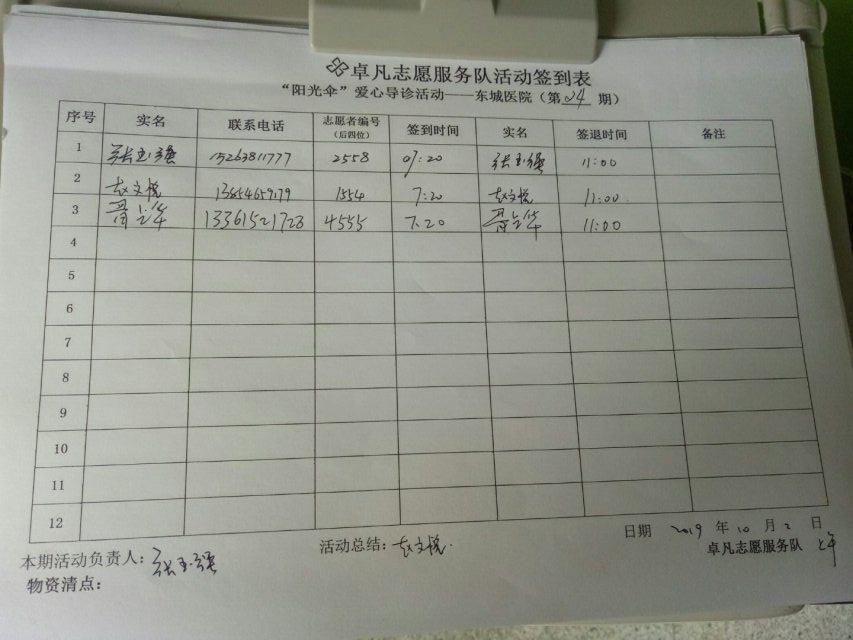 卓凡志愿服务队活动签到表
“阳光伞”爱心导诊活动——东城医院（第24期）
序号 实名 联系电话 志愿者编号（后四位） 签到时间 实名 签退时间 备注
1 张玉强 15263811777 2558 07:20 张玉强 11:00
2 赵文悦 13654659179 1554 7:20 赵文悦 11:00
3 13361521723 4555 7.20 11:00
4
5
6
7
8
9
10
11
12
日期 2019年10月2日
本期活动负责人：张玉强 活动总结：赵文悦. 卓凡志愿服务队 上午
物资清点：